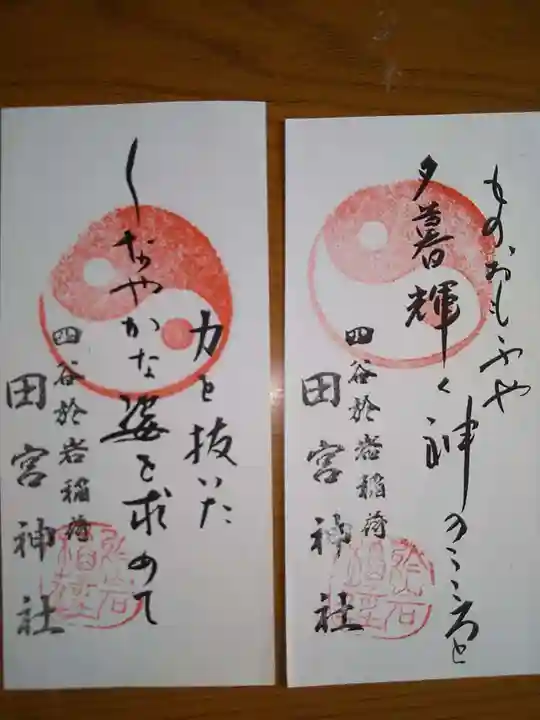 ものおもふや
夕暮輝く
神のこころと
四谷於岩稲荷
田宮神社
力を抜いた
しなやかな姿を求めて
四谷於岩稲荷
田宮神社